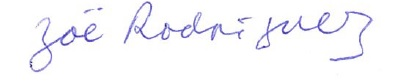 Zoë Rodriguez